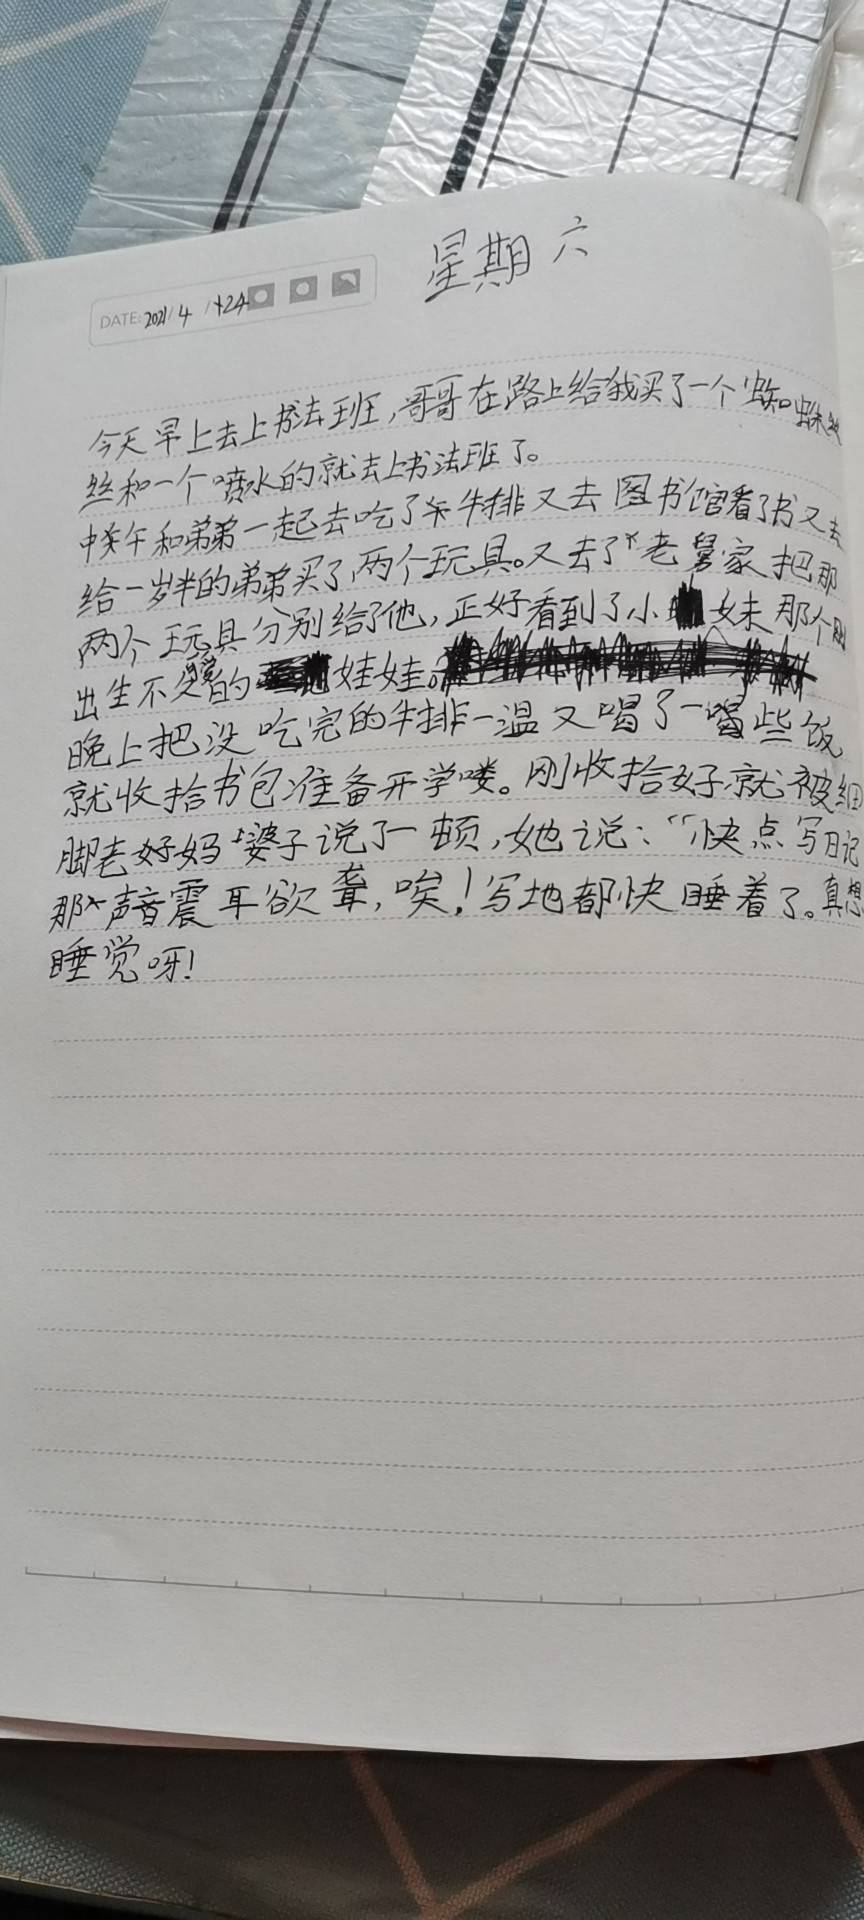 星期六
DATE: 2021/4/24
今天早上去上书法班,哥哥在路上给我买了一个蜘蛛
丝和一个喷水的就去上书法班了。
中午和弟弟一起去吃了牛排又去图书馆看了书又去
给一岁半的弟弟买了两个玩具。又去了老舅家把那
两个玩具分别给了他,正好看到了小妹那个刚
出生不久的娃娃。
晚上把没吃完的牛排一温又喝了一喝些饭
就收拾书包准备开学喽。刚收拾好就被细
脚老好妈婆子说了一顿,她说:“快点写日记
那声音震耳欲聋,唉!写地都快睡着了。真想
睡觉呀!